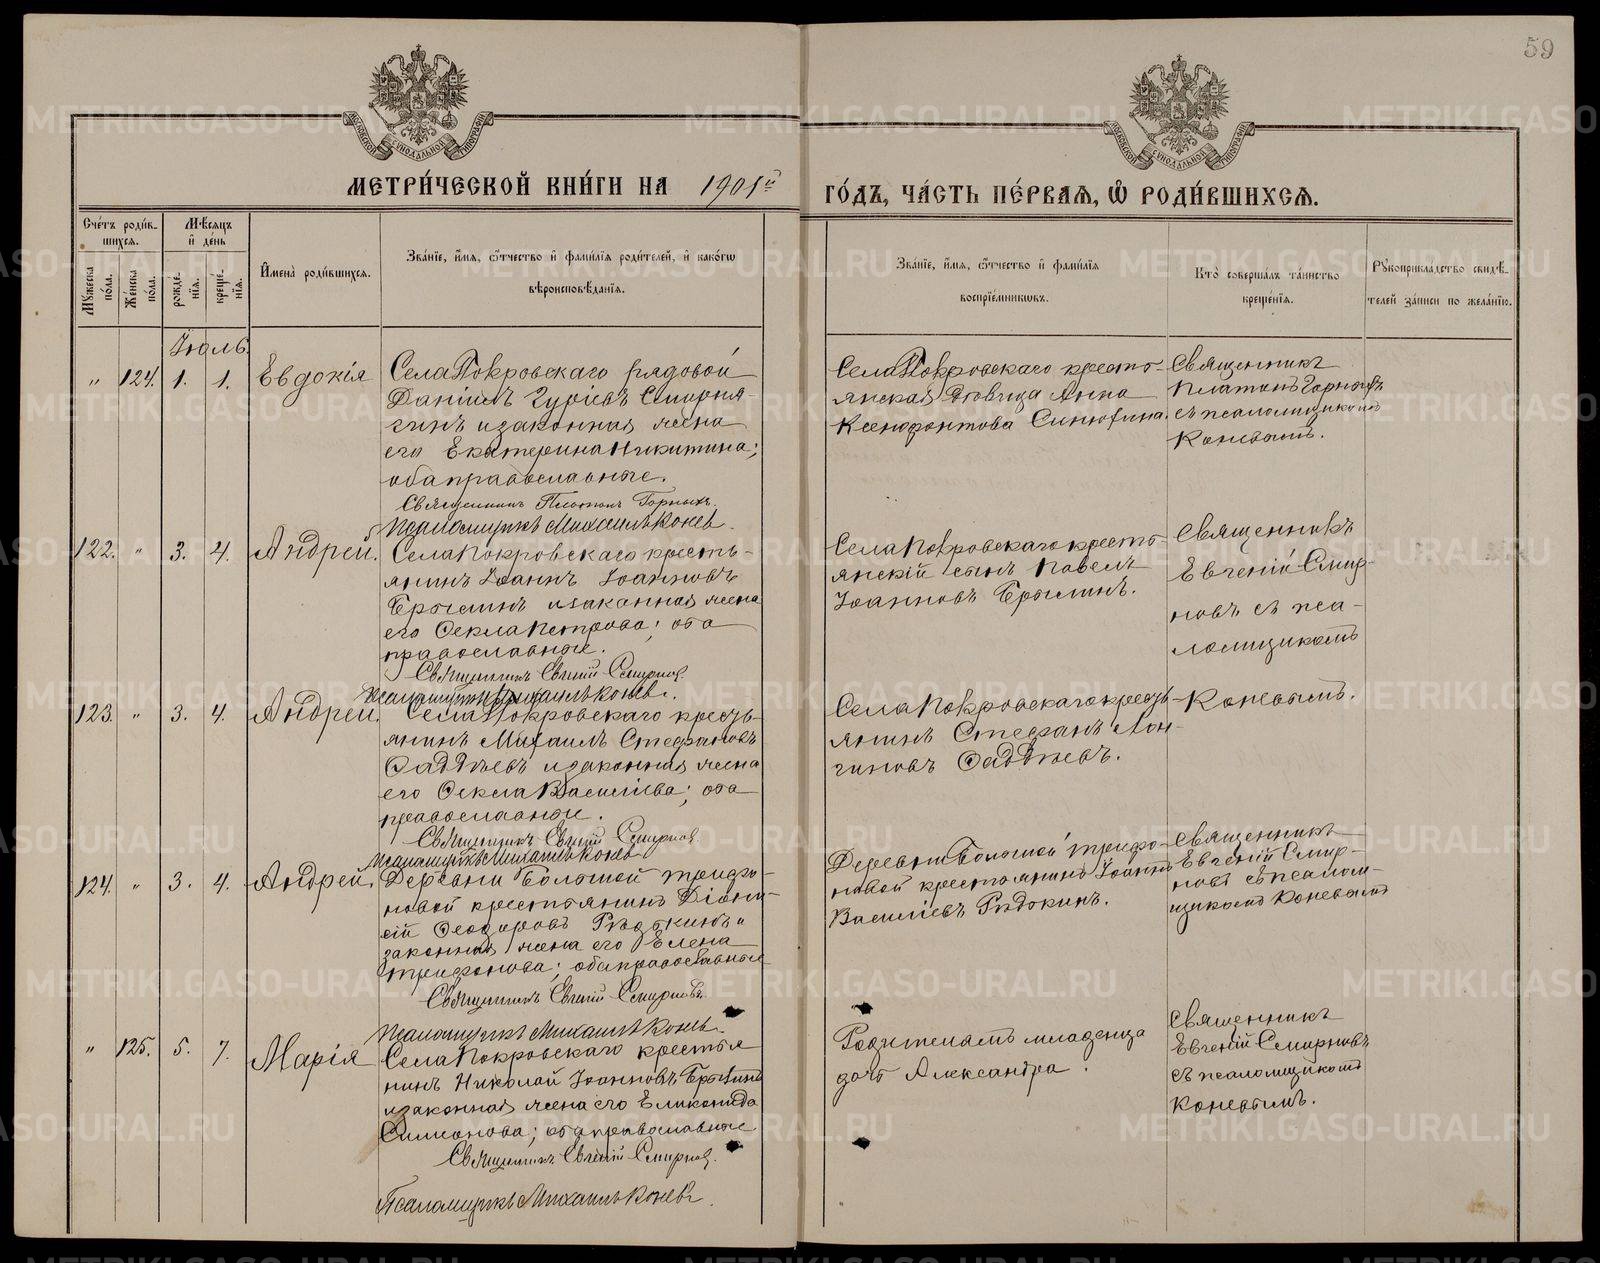 59
МОСКОВСКОЙ СѴНОДАЛЬНОЙ ТИПОГРАФІИ
МОСКОВСКОЙ СѴНОДАЛЬНОЙ ТИПОГРАФІИ
МЕТРИ́ЧЕСКОЙ КНИ́ГИ НА 1901й ГО́ДЪ, ЧА́СТЬ ПЕ́РВАѦ, Ѡ҆ РОДИ́ВШИХСѦ.
Сче́тъ роди́в-
шихсѧ.
Мѣ́сѧцъ
и҆ де́нь
Мꙋ́жеска
по́ла.
Же́нска
по́ла.
рожде-
нїѧ.
креще́-
нїѧ.
И҆мена̀ роди́вшихсѧ.
Зва́нїе, и҆́мѧ, ѻ҆́тчество и҆ фами́лїѧ роди́телей, и҆ како́гѡ
вѣроисповѣ́данїѧ.
Зва́нїе, и҆́мѧ, ѻ҆́тчество и҆ фами́лїѧ
воспрїе́мникѡвъ.
Кто̀ соверша́лъ та́инство
креще́нїѧ.
Рꙋкоприкла́дство свидѣ́-
телей за́писи по жела́нїю.
Іюль
„ 124. 1. 1. Евдокія
Села Покровскаго рядовой
Даніилъ Гуріевъ Смирня-
гинъ и законная жена
его Екатерина Никитина;
оба православные.
Священникъ Платонъ Горныхъ
Псаломщикъ Михаилъ Коневъ
Села Покровскаго кресть-
янская дѣвица Анна
Ксенофонтова Синюгина.
Священникъ
Платонъ Горныхъ
съ псаломщикомъ
Коневымъ.
122. „ 3. 4. Андрей.
Села Покровскаго кресть-
янинъ Іоаннъ Іоанновъ
Брылинъ и законная жена
его Ѳекла Петрова; оба
православные.
Священникъ Евгеній Смирновъ
Псаломщикъ Михаилъ Коневъ.
Села Покровскаго кресть-
янскій сынъ Павелъ
Іоанновъ Брылинъ.
Священникъ
Евгеній Смир-
новъ съ пса-
ломщикомъ
Коневымъ.
123. „ 3. 4. Андрей.
Села Покровскаго кресть-
янинъ Михаилъ Стефановъ
Ѳаддѣевъ и законная жена
его Ѳекла Василіева; оба
православные.
Священникъ Евгеній Смирновъ
Псаломщикъ Михаилъ Коневъ
Села Покровскаго кресть-
янинъ Стефанъ Лон-
гиновъ Ѳаддѣевъ.
124. „ 3. 4. Андрей.
Деревни Большой Трифо-
новой крестьянинъ Діони-
сій Ѳеодоровъ Рѣдькинъ и
законная жена его Елена
Трифонова; оба православные
Священникъ Евгеній Смирновъ
Псаломщикъ Михаилъ Коневъ
Деревни Большой Трифо-
новой крестьянинъ Іоаннъ
Василіевъ Рѣдькинъ.
Священникъ
Евгеній Смир-
новъ съ псалом-
щикомъ Коневымъ
„ 125. 5. 7. Марія
Села Покровскаго крестья
нинъ Николай Іоанновъ Брылинъ
и законная жена его Еликонида
Симеонова; оба православные
Священникъ Евгеній Смирновъ.
Псаломщикъ Михаилъ Коневъ.
Родителямъ младенца
дочь Александра.
Священникъ
Евгеній Смирновъ
съ псаломщикомъ
Коневымъ.
METRIKI.GASO-URAL.RU